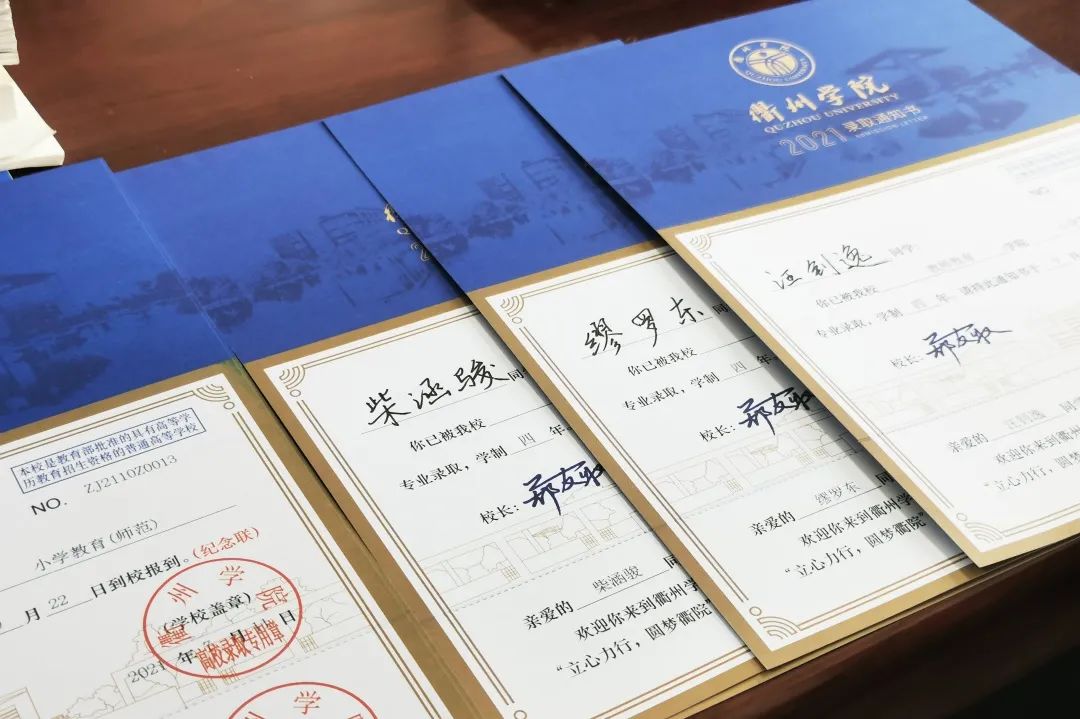 衢州学院
QUZHOU UNIVERSITY
衢州学院
QUZHOU UNIVERSITY
2021录取通知书
ADMISSION LETTER
本校是教育部批准的具有高等学
历教育招生资格的普通高等学校
NO. ZJ2110Z0013
小学教育(师范)
月 22 日到校报到。(纪念联)
(学校盖章)
2021 年 月 日
高校录取专用章
柴涵骏 同
你已被我校
专业录取，学制 四 年。
校长：郑友取
亲爱的 柴涵骏 同
欢迎你来到衢州学
“立心力行，圆梦衢院”
缪罗东 同
你已被我校
专业录取，学制 四 年
校长：郑友取
亲爱的 缪罗东 同
欢迎你来到衢州学
“立心力行，圆梦衢院”
NO
汪剑逸 同学：
你已被我校 教师教育 学院
专业录取，学制 四 年。请持此通知书于
校长：郑友取
亲爱的 汪剑逸 同学
欢迎你来到衢州学
“立心力行，圆梦